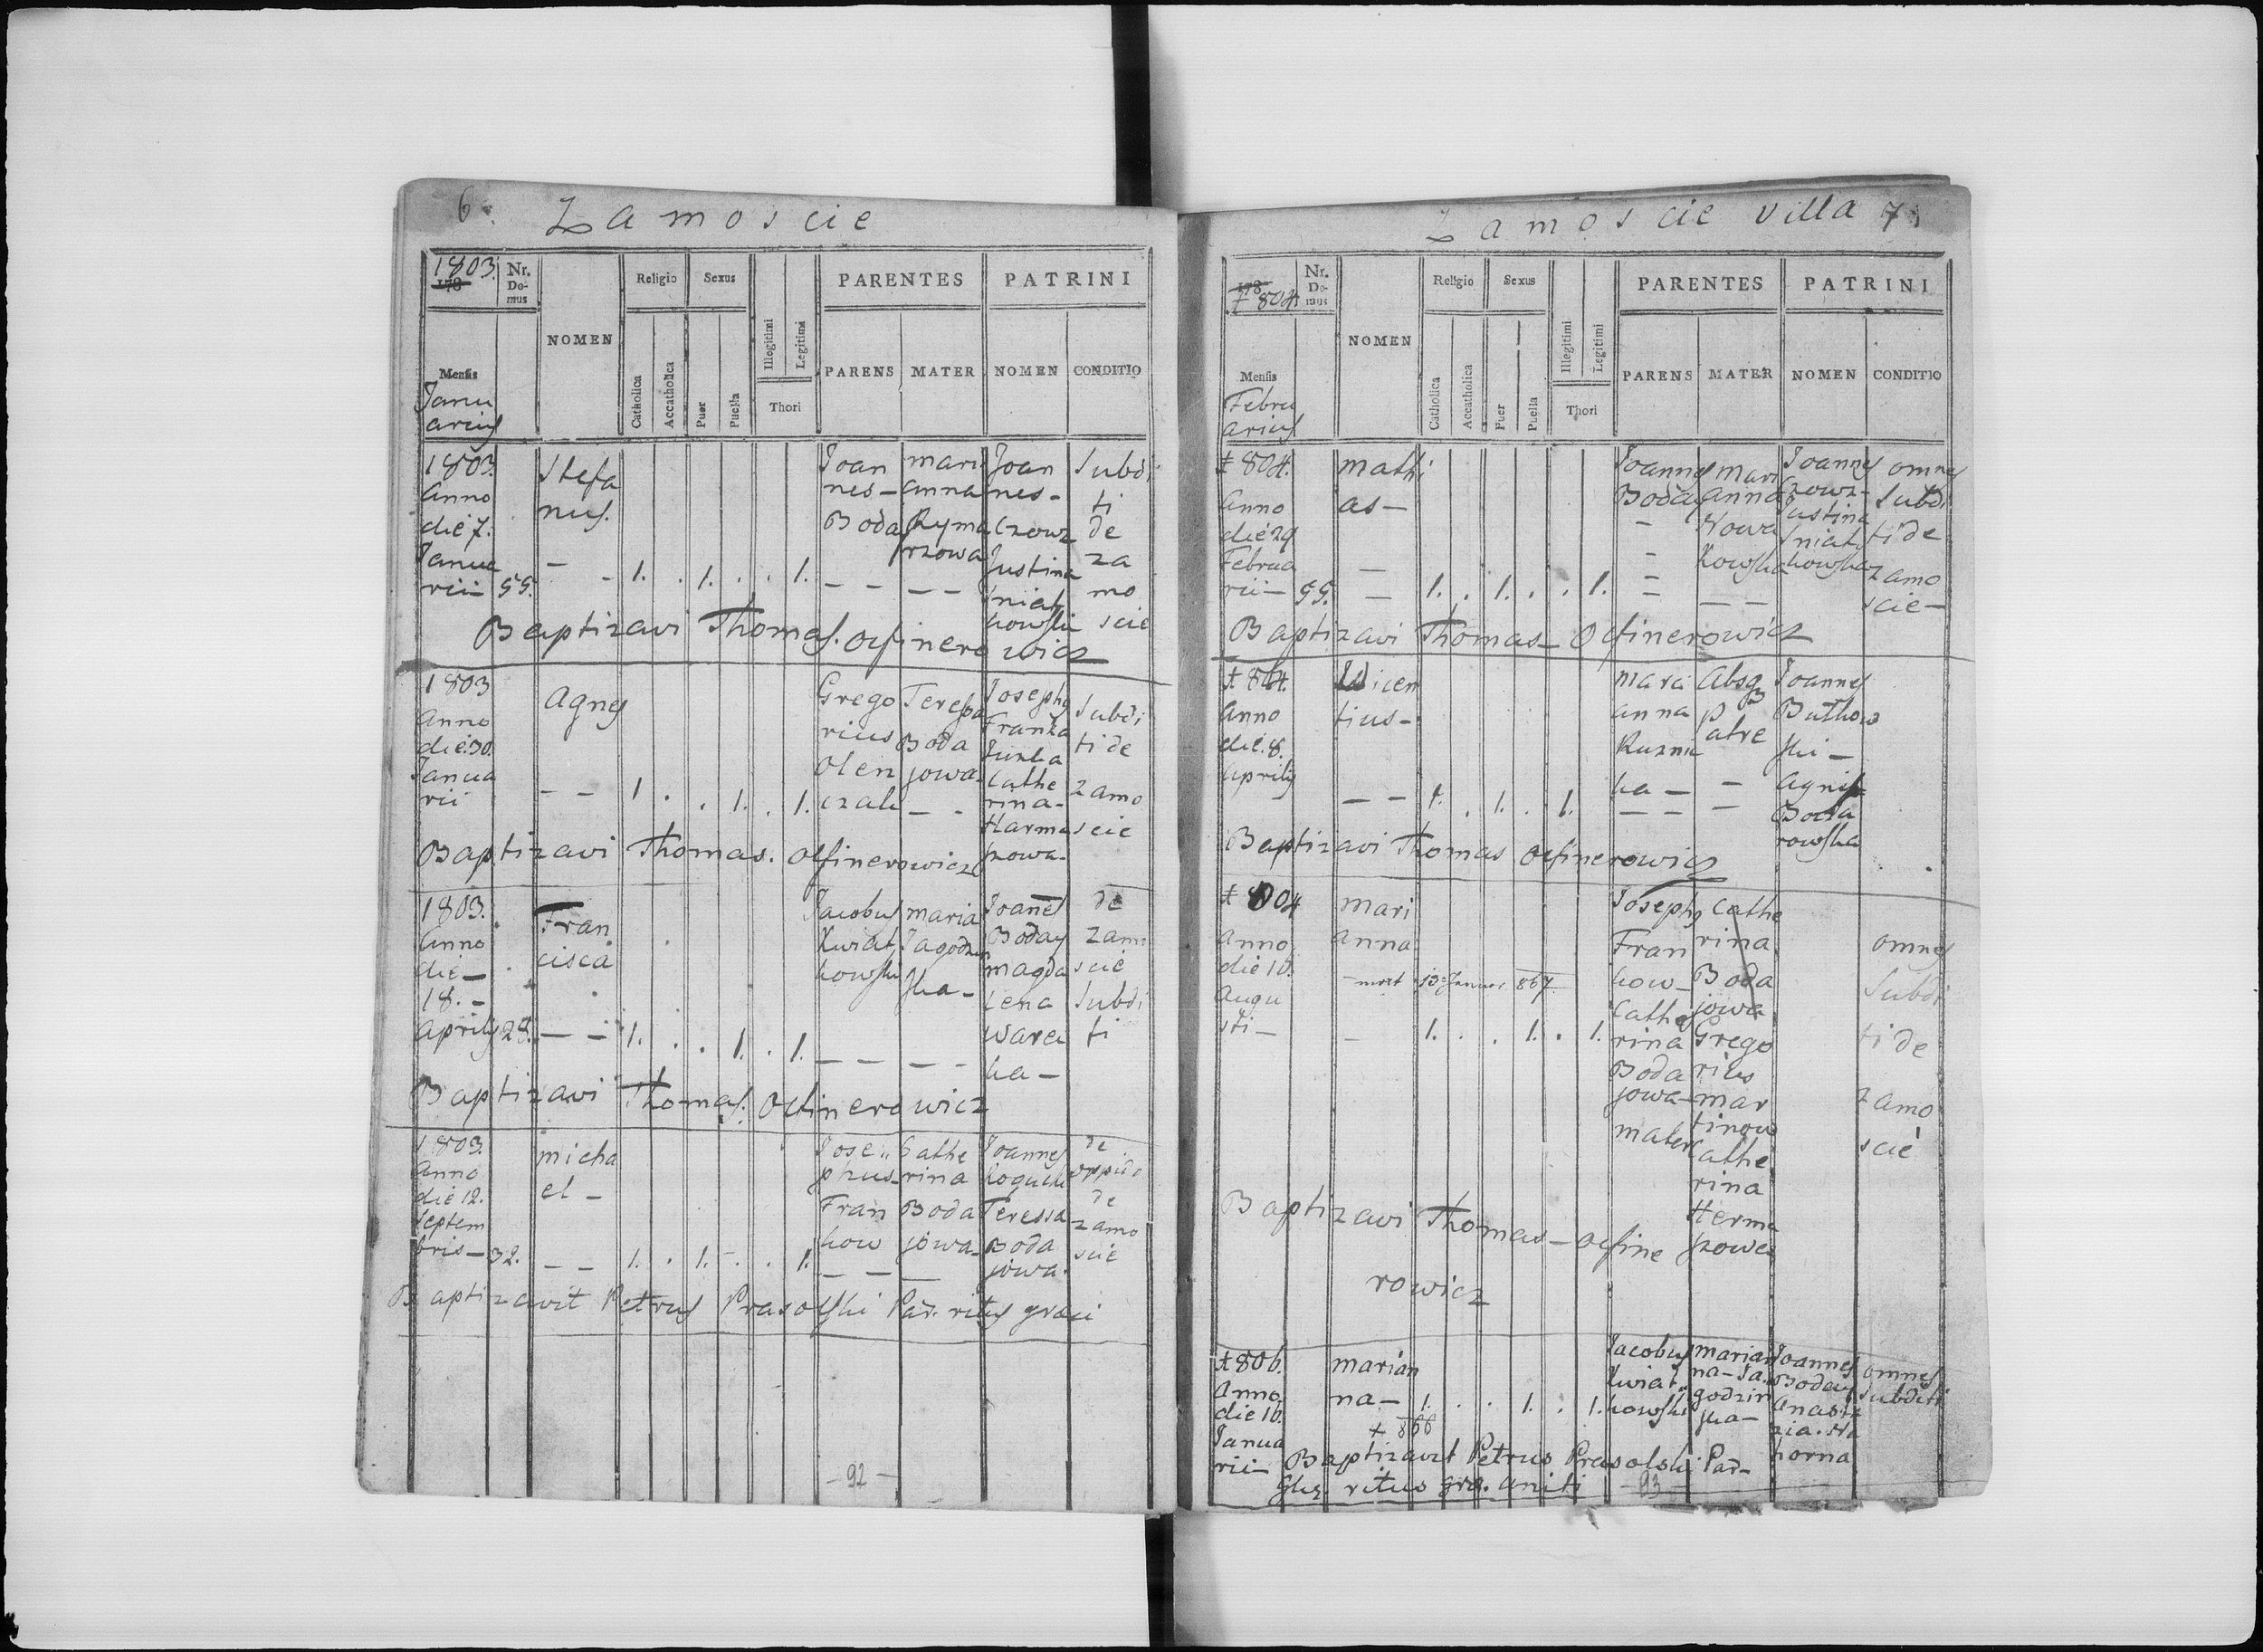 6. Zamoscie
1803.
178
Nr. Do- mus
NOMEN
Religio
Sexus
Illegitimi
Legitimi
PARENTES
PATRINI
Mensis
Catholica
Accatholica
Puer
Puella
Thori
PARENS
MATER
NOMEN
CONDITIO
Janu
arius
1803.
Anno
die 7.
Janua
rii — 55.
Stefa
nus.
— - 1. . 1. . . 1.
Joan
nes —
Boday
— —
Mari
anna
Ryma
rzowa
— —
Joan
nes -
Czowz
Justina
Sniat
kowski
Subdi
ti
de
Za
mo
scie
Baptizavi Thomas. Ocfinerowicz
1803
Anno
die 30.
Janua
rii
Agnes
— — 1 . . 1. . 1.
Grego
rius
Olen
czak
Teressa
Boda
jowa.
— -
Josephus
Franka
Cathe
rina -
Harma
Subdi
ti de
Zamo
scie
Baptizavi Thomas. Ocfinerowicz
1803.
Anno
die —
18. -
Aprilis 28.
Fran
cisca
— — 1. . . 1. . 1.
Jacobus
Kwiat
kowski
— —
Maria
Jagodzin
ska —
— -
Joanes
Boday
Magda
lena
ka —
de
Zamo
scie
Subdi
ti
Baptizavi Thomas. Ocfinerowicz
1803.
Anno
die 12.
Septem
bris — 32.
Micha
el —
— — 1. . 1. - . . 1.
Jose„
phus —
Fran
kow
— —
Cathe
rina
Boda
jowa —
—
Joannes
Teressa
Boda
jowa.
de
oppido
de
Zamo
scie
Baptizavit Petrus Prasolski Par. ritus graeci
- 92 -
Zamoscie villa 7.
178
1804.
Nr. Do- mus
NOMEN
Religio
Sexus
Illegitimi
Legitimi
PARENTES
PATRINI
Mensis
Catholica
Accatholica
Puer
Puella
Thori
PARENS
MATER
NOMEN
CONDITIO
Febru
arius
1804.
Anno
die 29
Februa
rii — 55.
Mathi
as —
— 1. . 1. . . 1.
Joannes
Boday
Mari
anna
Nowa
kowska
— —
Joannes
Czowz -
Justina
Sniat
kowska
omnes
Subdi
ti de
Zamo
scie —
Baptizavi Thomas — Ocfinerowicz
1804.
Anno
die. 8.
Aprilis
Wicen
tius —
— — 1. . 1. . 1.
Mari
anna
Kuznic
ka —
— —
Absq
p
atre
—
—
Joannes
Butkow
ski —
Agnis
Boda
rowska
Baptizavi Thomas Ocfinerowicz
1804
Anno
die 10.
Augu
sti —
Mari
anna
— mort 13 Januar 867
— 1. . . 1. . 1.
Josephus
Fran
kow —
Cathe
rina
Boda
jowa —
mater
Cathe
rina
Boda
jowa
Grego
rius
Mar
tinow
Cathe
rina
Herma
nowa
omnes
Subdi
ti de
Zamo
scie
Baptizavi Thomas — Ocfine
rowicz
1806.
Anno
die 10.
Janua
rii —
Marian
na — 1. . . 1. . 1.
+ 866
Jacobus
Kwiat„
kowski
Marian
na — Ja„
godzin
ska —
Joannes
Boday
Anasta
zia. Na
horna
omnes
Subditi
Baptizavit Petrus Prasolski Par —
ritus gra. uniti
- 93 -